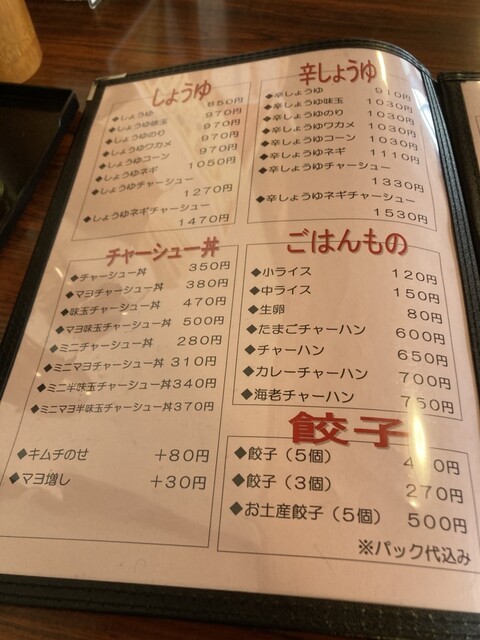 しょうゆ
◆しょうゆ 850円
◆しょうゆ味玉 970円
◆しょうゆのり 970円
◆しょうゆワカメ 970円
◆しょうゆコーン 970円
◆しょうゆネギ 1050円
◆しょうゆチャーシュー
1270円
◆しょうゆネギチャーシュー
1470円
辛しょうゆ
◆辛しょうゆ 910円
◆辛しょうゆ味玉 1030円
◆辛しょうゆのり 1030円
◆辛しょうゆワカメ 1030円
◆辛しょうゆコーン 1030円
◆辛しょうゆネギ 1110円
◆辛しょうゆチャーシュー
1330円
◆辛しょうゆネギチャーシュー
1530円
チャーシュー丼
◆チャーシュー丼 350円
◆マヨチャーシュー丼 380円
◆味玉チャーシュー丼 470円
◆マヨ味玉チャーシュー丼 500円
◆ミニチャーシュー丼 280円
◆ミニマヨチャーシュー丼 310円
◆ミニ半味玉チャーシュー丼340円
◆ミニマヨ半味玉チャーシュー丼370円
◆キムチのせ +80円
◆マヨ増し +30円
ごはんもの
◆小ライス 120円
◆中ライス 150円
◆生卵 80円
◆たまごチャーハン 600円
◆チャーハン 650円
◆カレーチャーハン 700円
◆海老チャーハン 750円
餃子
◆餃子（5個）
◆餃子（3個） 270円
◆お土産餃子（5個） 500円
※パック代込み